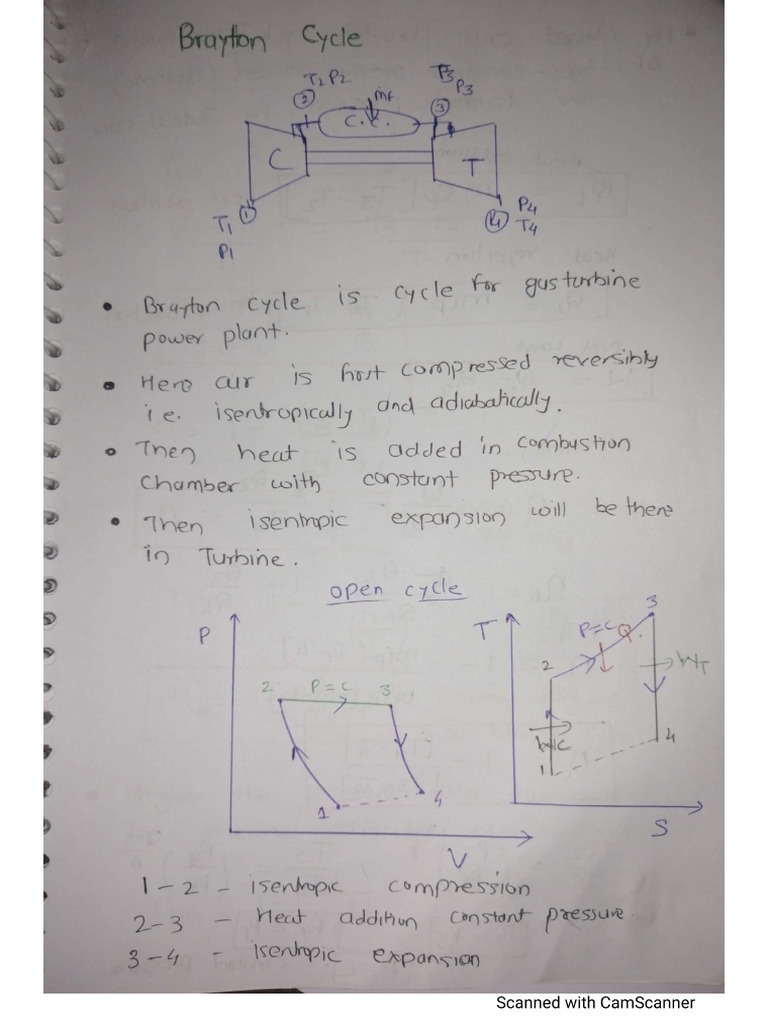 Brayton Cycle
T2 P2
T3 P3
2
ṁf
3
C.C.
C
T
T1 1
P1
4 P4
T4
• Brayton cycle is cycle for gas turbine
power plant.
• Here air is first compressed reversibly
i.e. isentropically and adiabatically.
• Then heat is added in combustion
Chamber with constant pressure.
• Then isentropic expansion will be there
in Turbine.
open cycle
P
2 P=C 3
1
4
V
T
3
P=C Q.
2
WT
WC
4
1
S
1-2 - isentropic compression
2-3 - Heat addition constant pressure.
3-4 - isentropic expansion
Scanned with CamScanner